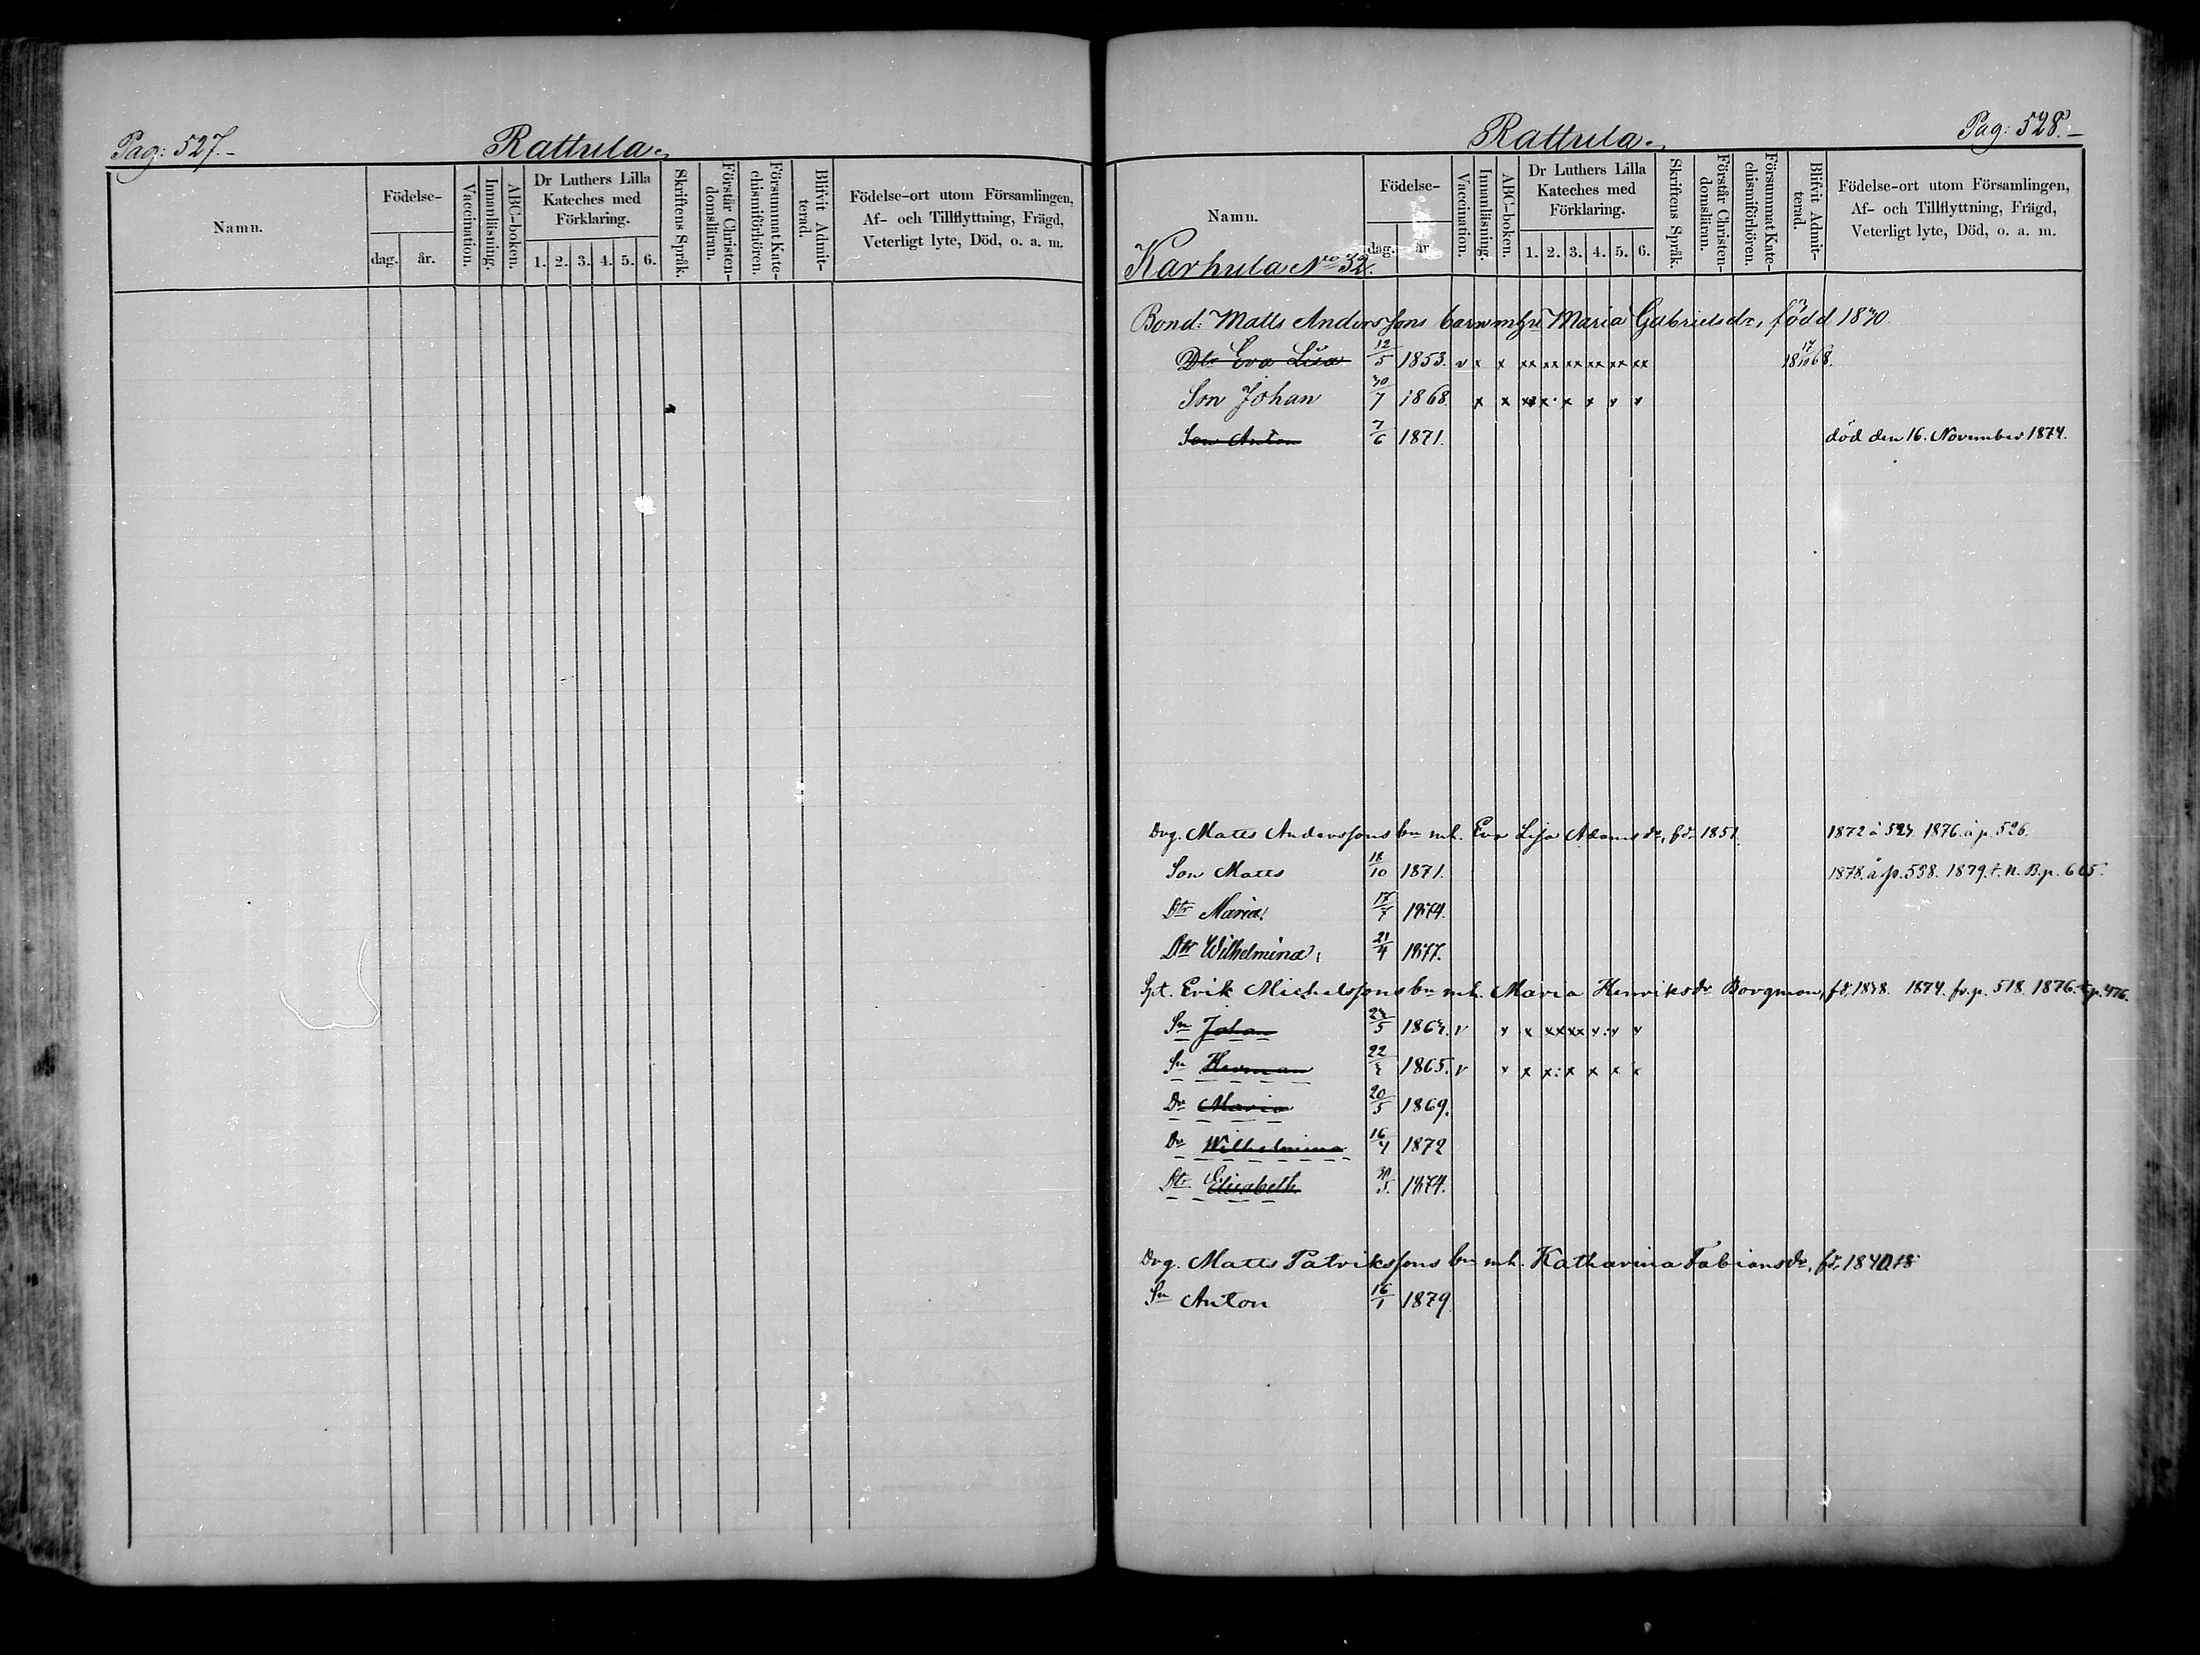 Pag: 527.-
Rattula.
Namn.
Födelse-
dag.
år.
Vaccination.
Innanläsning.
ABC-boken.
Dr Luthers Lilla
Kateches med
Förklaring.
1. 2. 3. 4. 5. 6.
Skriftens Språk.
Förstår Christen-
domsläran.
Försummat Kate-
chismiförhören.
Blifvit Admit-
terad.
Födelse-ort utom Församlingen,
Af- och Tillflyttning, Frägd,
Veterligt lyte, Död, o. a. m.
Rattula.
Pag: 528.-
Namn.
Födelse-
dag.
år
Vaccination.
Innanläsning.
ABC-boken.
Dr Luthers Lilla
Kateches med
Förklaring.
1. 2. 3. 4. 5. 6.
Skriftens Språk.
Förstår Christen-
domsläran.
Försummat Kate-
chismiförhören.
Blifvit Admit-
terad.
Födelse-ort utom Församlingen,
Af- och Tillflyttning, Frägd,
Veterligt lyte, Död, o. a. m.
Karhula No 32.
Bond: Matts Anderssons barn mhu Maria Gabrielsdr, född 1830.
Dtr Eva Lisa 12/5 1853. v x x xx xx xx xx xx xx 18 17/10 68.
Son Johan 30/7 1868. x x xx x x x x x
Son Anton 7/6 1871. död den 16. November 1874.
Drg. Matts Anderssons bn mh. Eva Lisa Adamsdr, fd. 1851. 1872 å 524. 1876. å p. 526.
Son Matts 18/10 1871. 1878. å p. 538. 1879. t. N. B. p. 605.
Dtr Maria. 1874.
Dtr Wilhelmina. 21/4 1877.
Spt. Erik Michelssons bn mh. Maria Henriksdr Borgman, fd. 1838. 1874. fr. p. 518. 1876. t. p. 476.
Sn Johan 1864. v x x xx xx x x x
Sn Herman 1865. v x x x: x x x x
Dr Maria 20/5 1869.
Dr Wilhelmina 16/4 1872
Dtr Elisabeth 1874.
Drg. Matts Patrikssons bn mh. Katharina Fabiansdr, fd. 1840.
Sn Anton 16/1 1879.